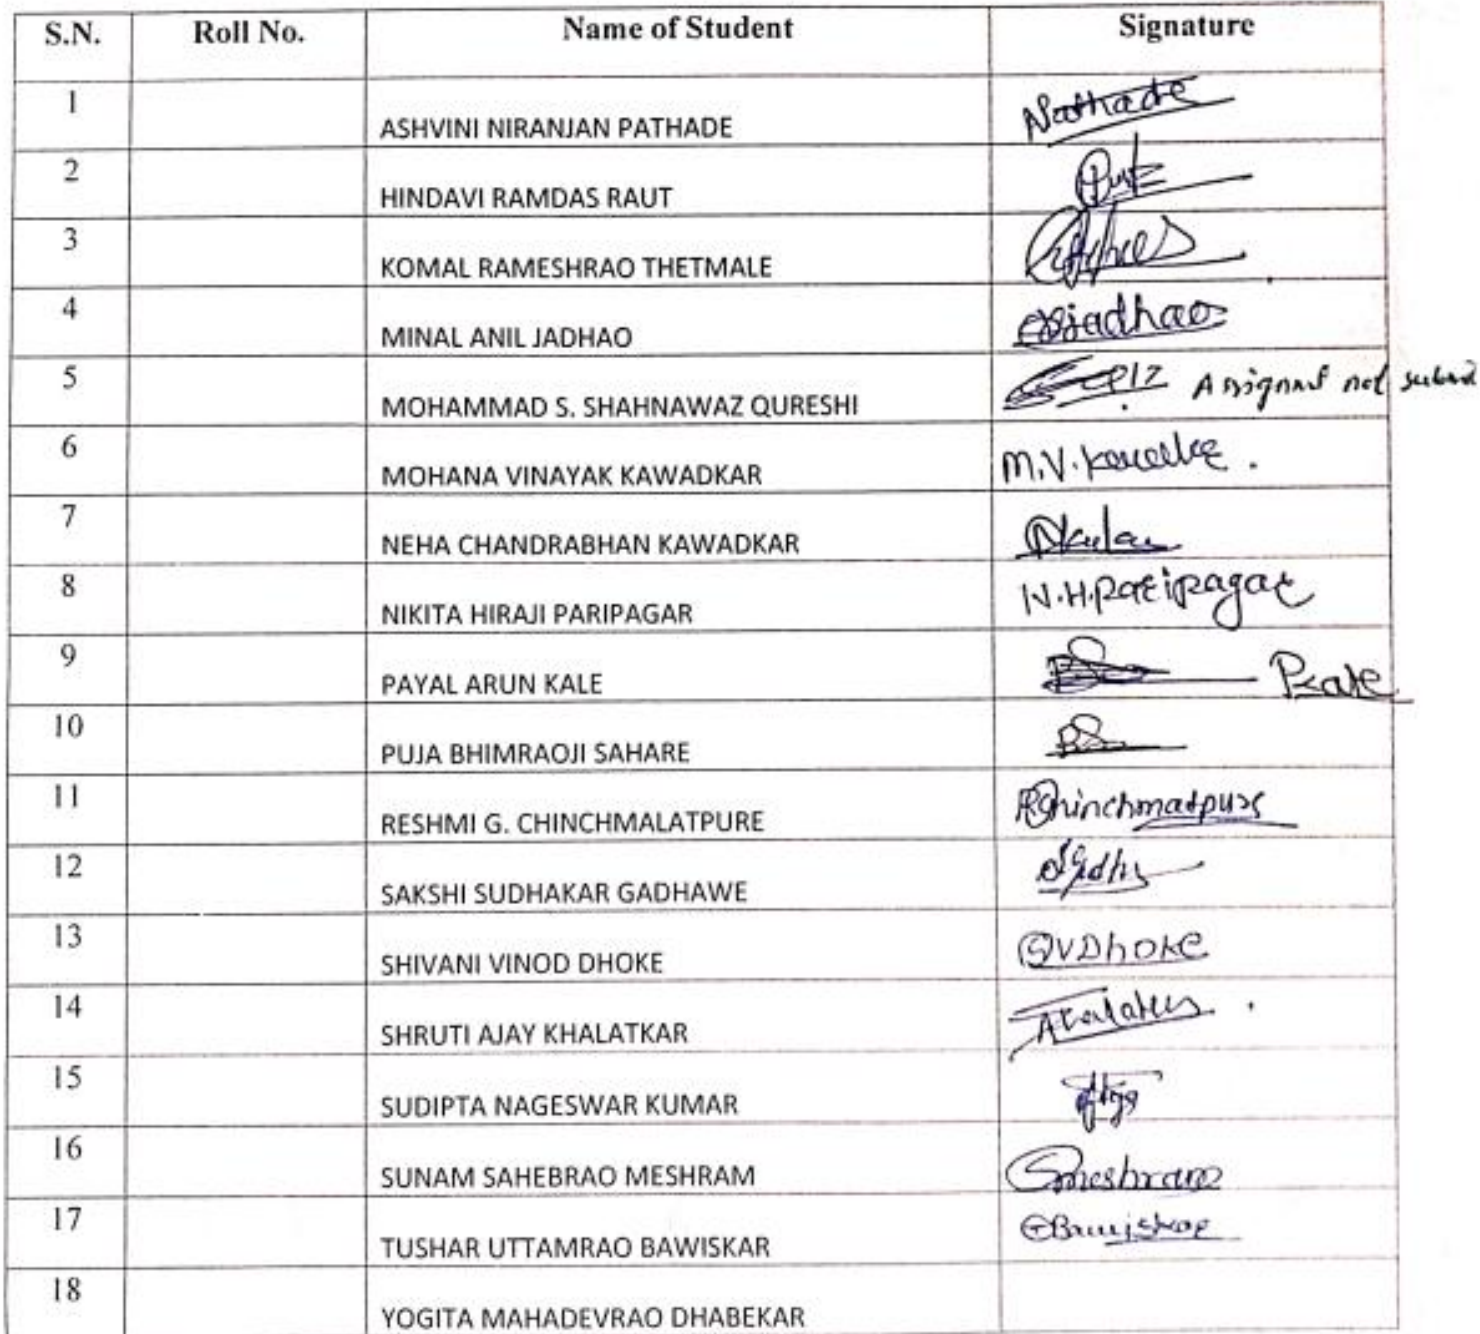 S.N. Roll No. Name of Student Signature
1 ASHVINI NIRANJAN PATHADE
2 HINDAVI RAMDAS RAUT
3 KOMAL RAMESHRAO THETMALE
4 MINAL ANIL JADHAO Jadhao
5 MOHAMMAD S. SHAHNAWAZ QURESHI not
6 MOHANA VINAYAK KAWADKAR M.V.
7 NEHA CHANDRABHAN KAWADKAR
8 NIKITA HIRAJI PARIPAGAR N.H.Paripagar
9 PAYAL ARUN KALE
10 PUJA BHIMRAOJI SAHARE
11 RESHMI G. CHINCHMALATPURE RChinchmatpure
12 SAKSHI SUDHAKAR GADHAWE
13 SHIVANI VINOD DHOKE SVDhoke
14 SHRUTI AJAY KHALATKAR
15 SUDIPTA NAGESWAR KUMAR
16 SUNAM SAHEBRAO MESHRAM Smeshram
17 TUSHAR UTTAMRAO BAWISKAR TBawiskar
18 YOGITA MAHADEVRAO DHABEKAR